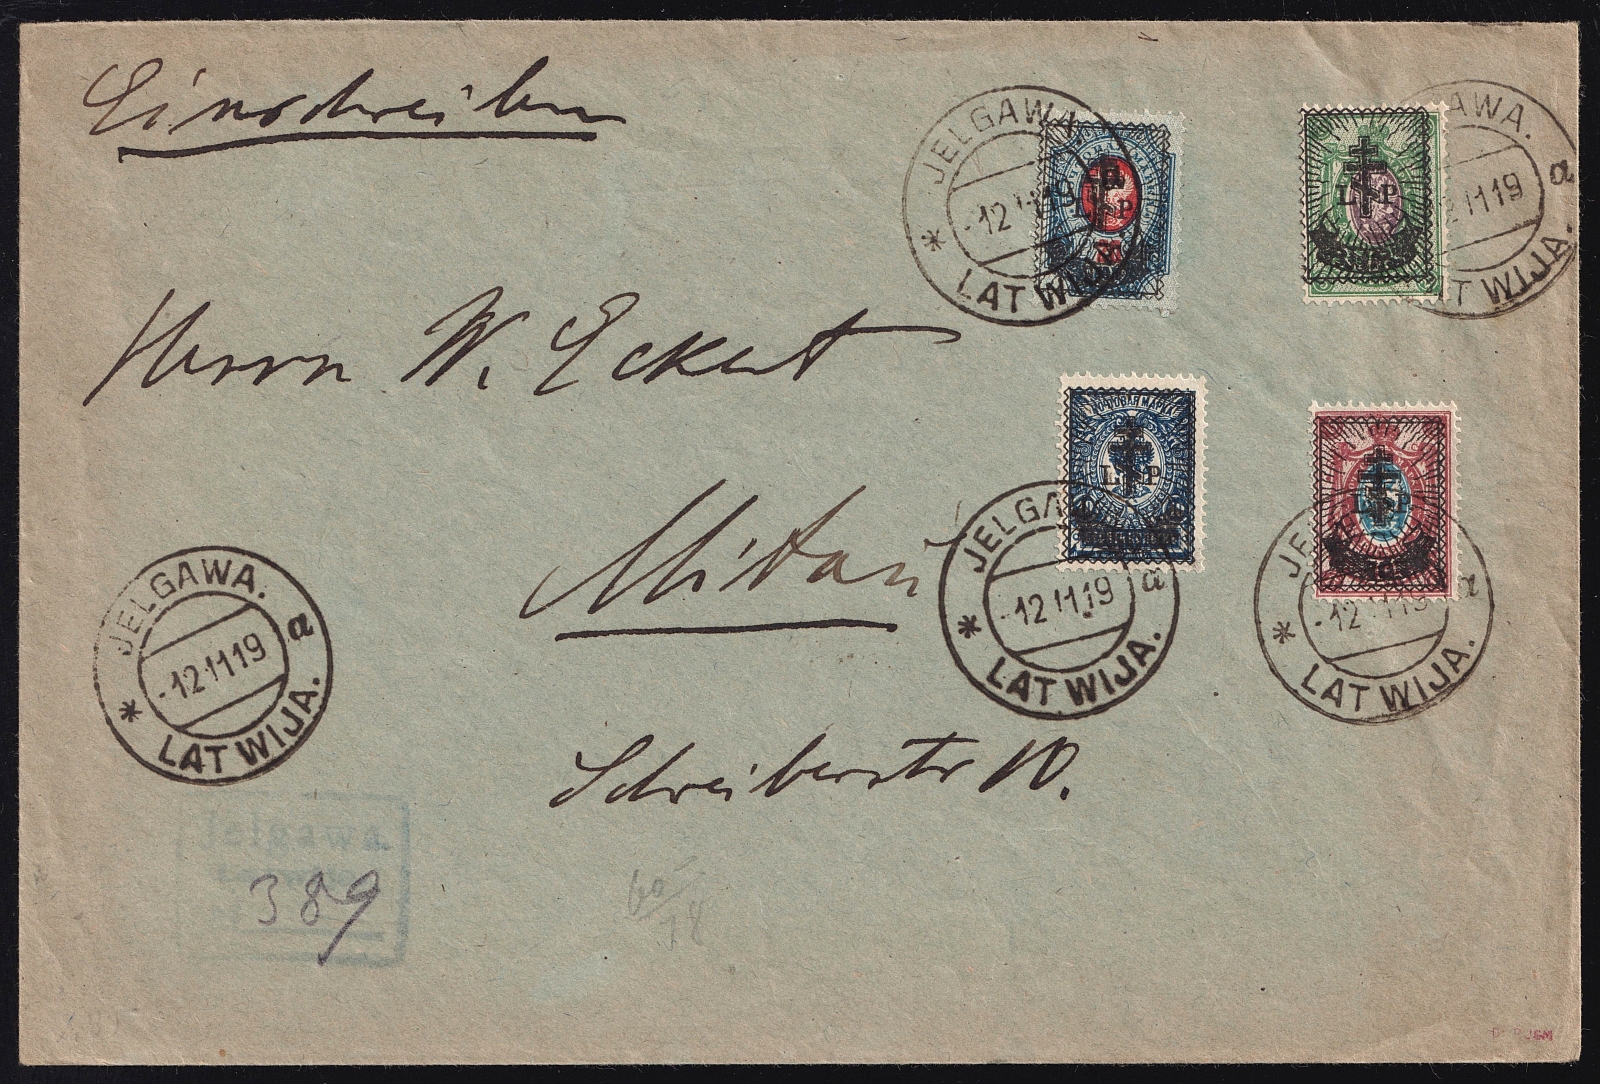 Einschreiben
Herrn W. Eckert
Mitau
Schreiberstr 10.
JELGAWA.
-12 11 19
LATWIJA.
JELGAWA.
a
12 11 19
LATWIJA.
L P
L P
JELGAWA
a
-12 11 19
LATWIJA.
L P
a
-12 11 19
LATWIJA.
L P
JELGAWA.
a
-12 11 19
LATWIJA.
Jelgawa.
389
60
78